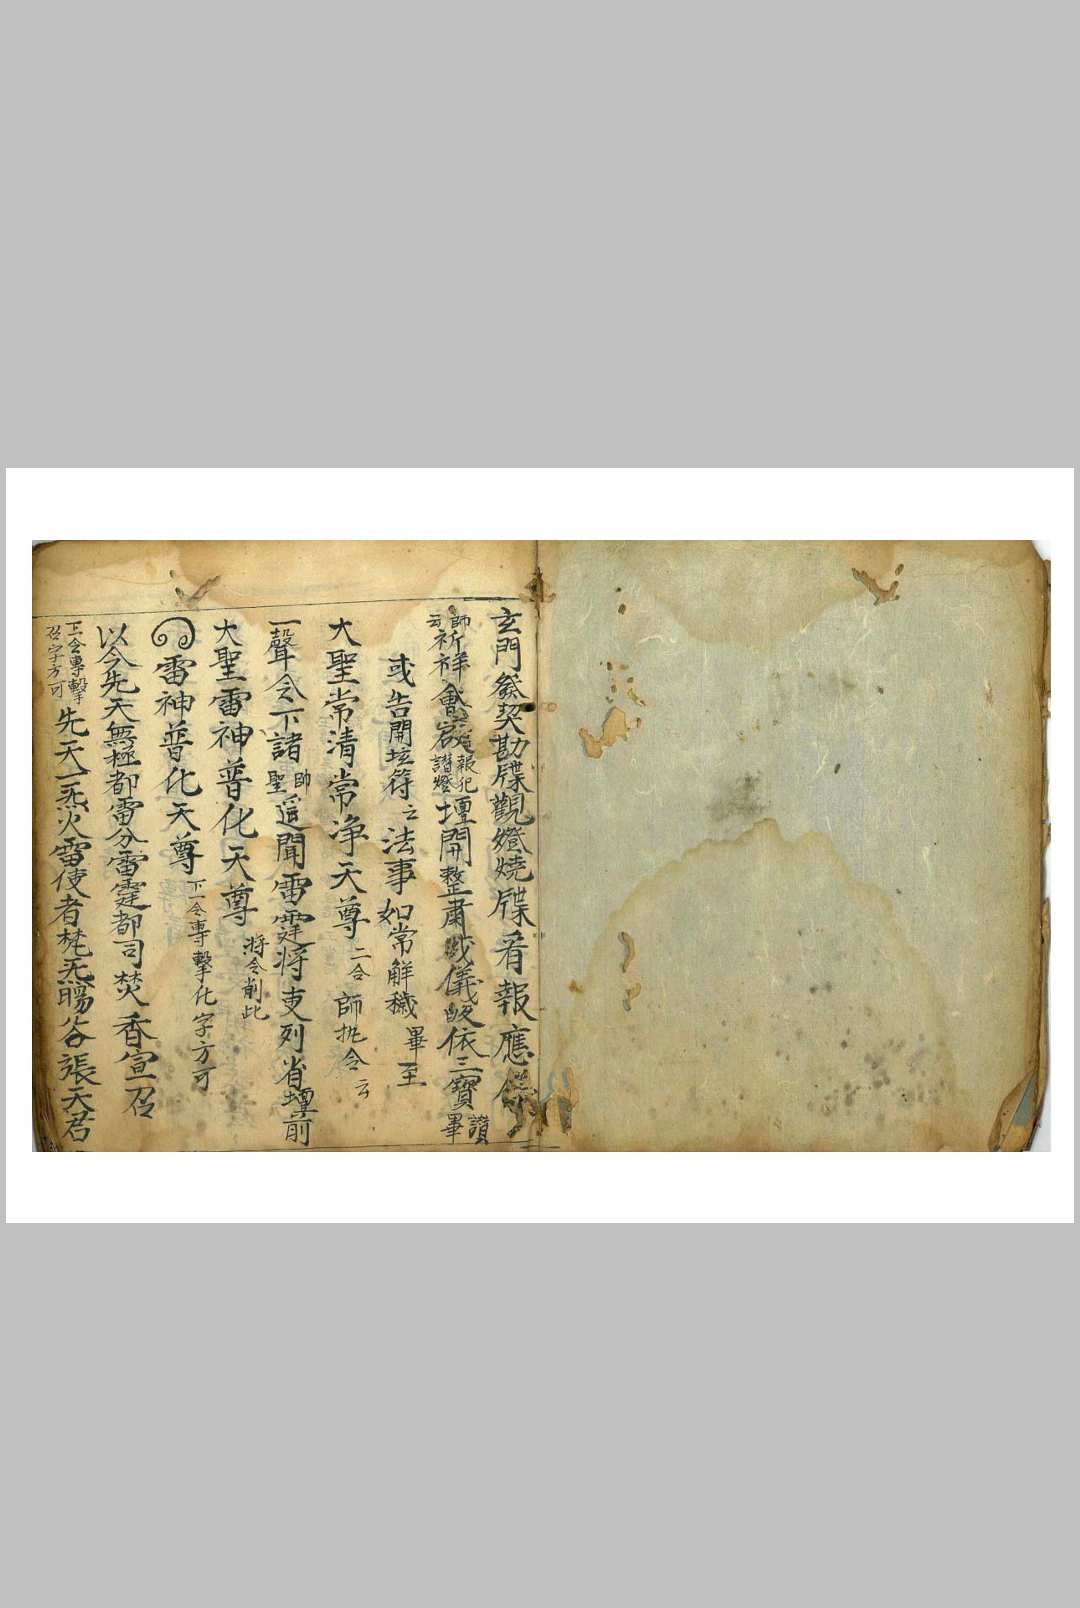 玄門發契勘牒觀燈燒牒看報應
師云祈祥會啟讃燈報犯壇開整肅儀依三寶讃畢
或告開坛符之法事如常解穢畢至
大聖常清常净天尊二合師执令云
一聲令下諸帥聖遥聞雷霆将吏列省壇前
大聖雷神普化天尊将令削此
雷神普化天尊二令專擊化字方可
以今先天無極都雷分雷霆都司焚香宣召
三令專擊召字方可先天一炁火雷使者梵炁暘谷張天君